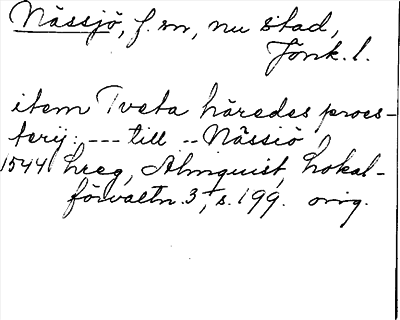 Nässjö, f. sn, nu stad,
Jönk. l.
item Tveta häredes proes-
terij: --- till -- Nässiö
1544 hreg, Almquist, Lokal-
förvaltn. 3, s. 199. orig.